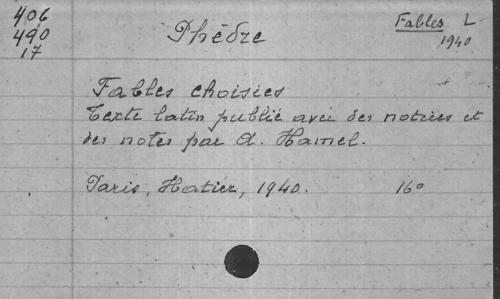 406
490
17
Phèdre
Fables L
1940
Fables choisies
Texte latin publié avec des notices et
des notes par A. Hamel.
Paris, Hatier, 1940. 16°